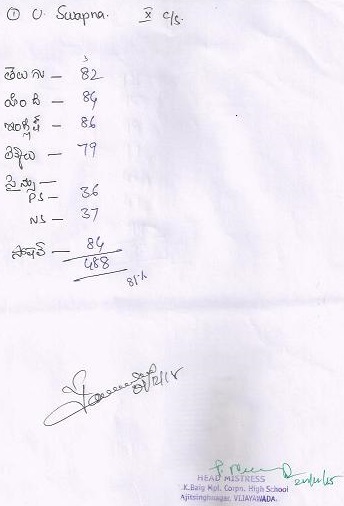 ① U. Swapna. X c/s.
తెలుగు – 82
హింది – 84
ఇంగ్లీష్ – 86
లెక్కలు – 79
సైన్సు –
PS – 36
NS – 37
సోషల్ – 84
488
81%
HEAD MISTRESS
K.Baig Mpl. Corpn. High School
Ajitsinghnagar, VIJAYAWADA.